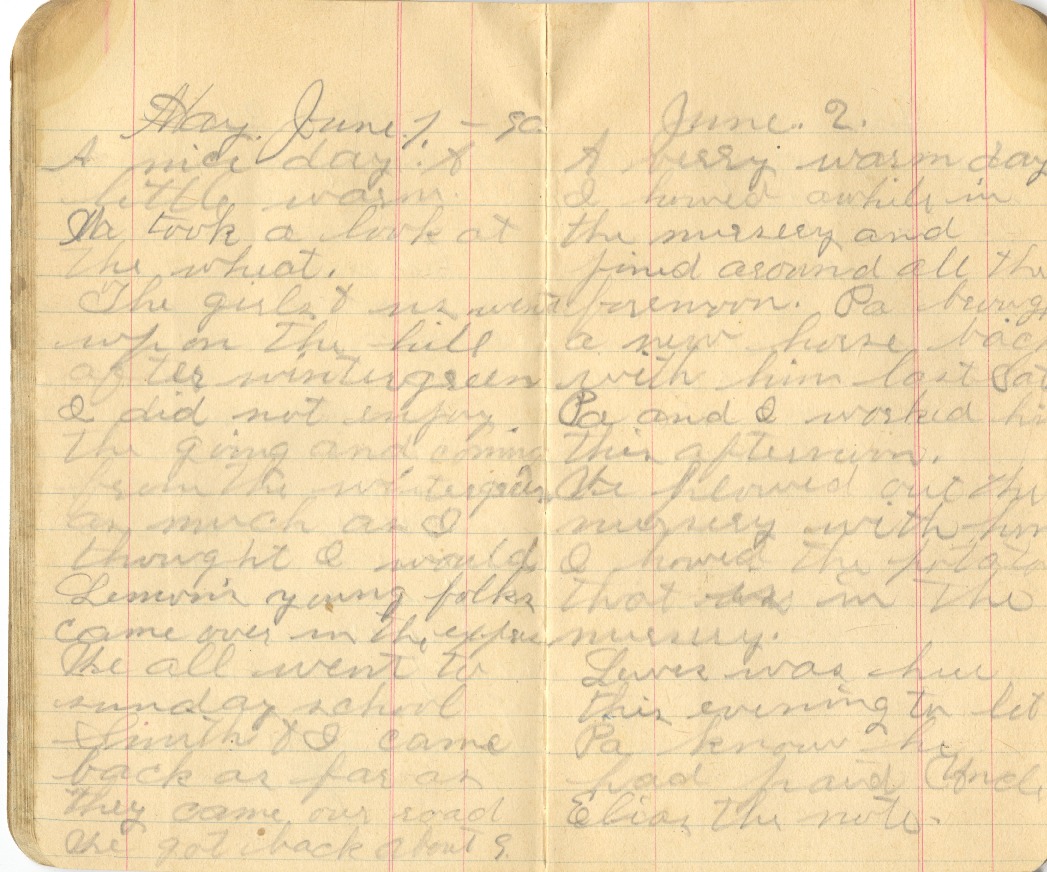 May. June. 1. - 90.
A nice day. &
little warm.
Pa took a look at
the wheat.
The girls & us went
up on the hill
after wintergreen
I did not enjoy
the going and coming
from the wintergreen
as much as I
thought I would
Lemon's young folks
came over in the express
We all went to
sunday school
Smith & I came
back as far as
they came our road
We got back about 9.
June. 2.
A verry warm day
I howed awhile in
the nursery and
fined around all the
forenoon. Pa brough
a new horse back
with him last Sat
Pa and I worked hi
this afternoon.
We plowed out the
nursery with him
I howed the potato
that is in the
nursery.
Lewis was here
this evening to let
Pa know he
had paid Uncle
Elias the note.